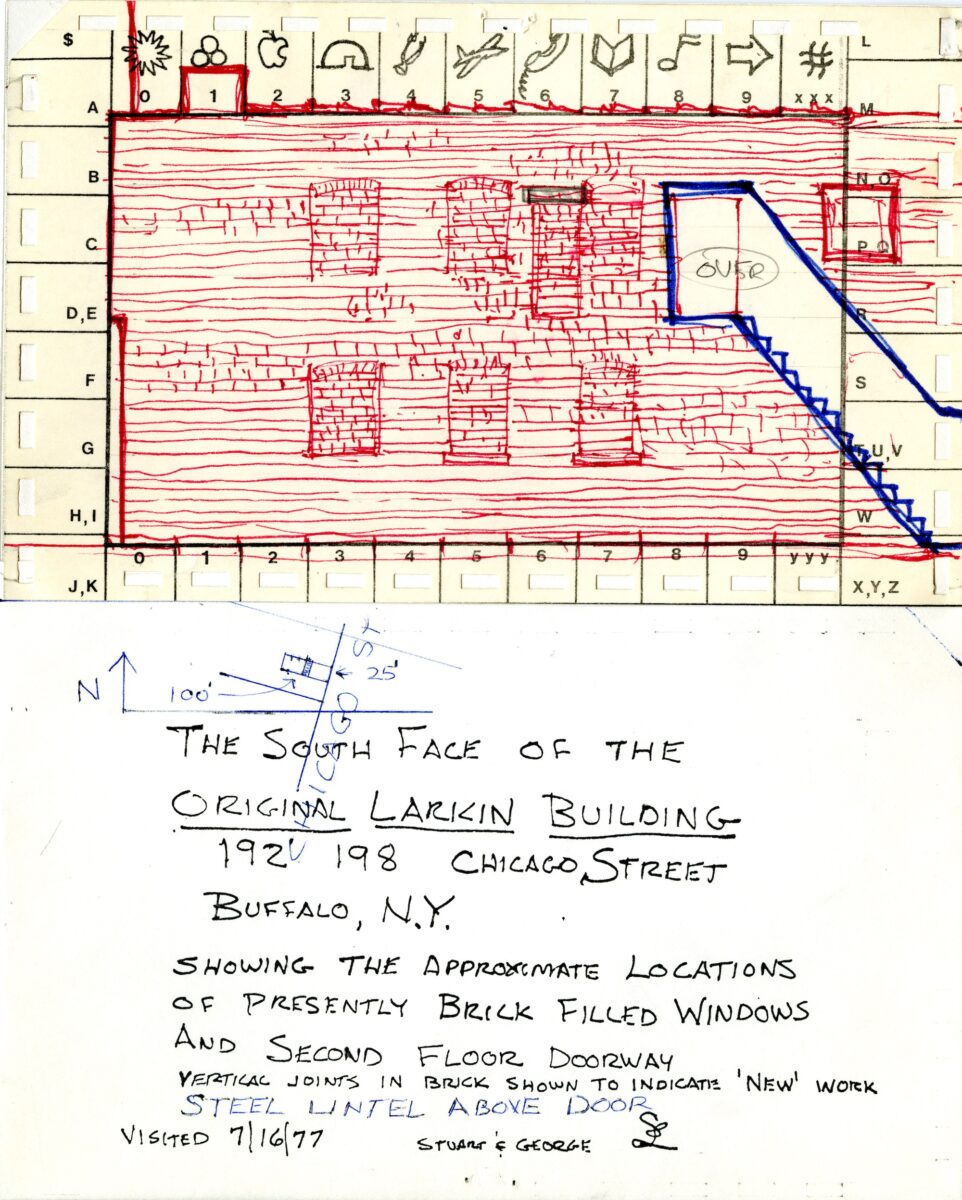 $ L
0 1 2 3 4 5 6 7 8 9 xxx
A M
B N,O
C P Q
OVER
D,E R
F S
G T,U,V
H,I W
0 1 2 3 4 5 6 7 8 9 yyy
J,K X,Y,Z
N
100'
25'
CHICAGO ST
THE SOUTH FACE OF THE
ORIGINAL LARKIN BUILDING
192 198 CHICAGO STREET
BUFFALO, N.Y.
SHOWING THE APPROXIMATE LOCATIONS
OF PRESENTLY BRICK FILLED WINDOWS
AND SECOND FLOOR DOORWAY
VERTICAL JOINTS IN BRICK SHOWN TO INDICATE 'NEW' WORK
STEEL LINTEL ABOVE DOOR
VISITED 7/16/77 STUART & GEORGE